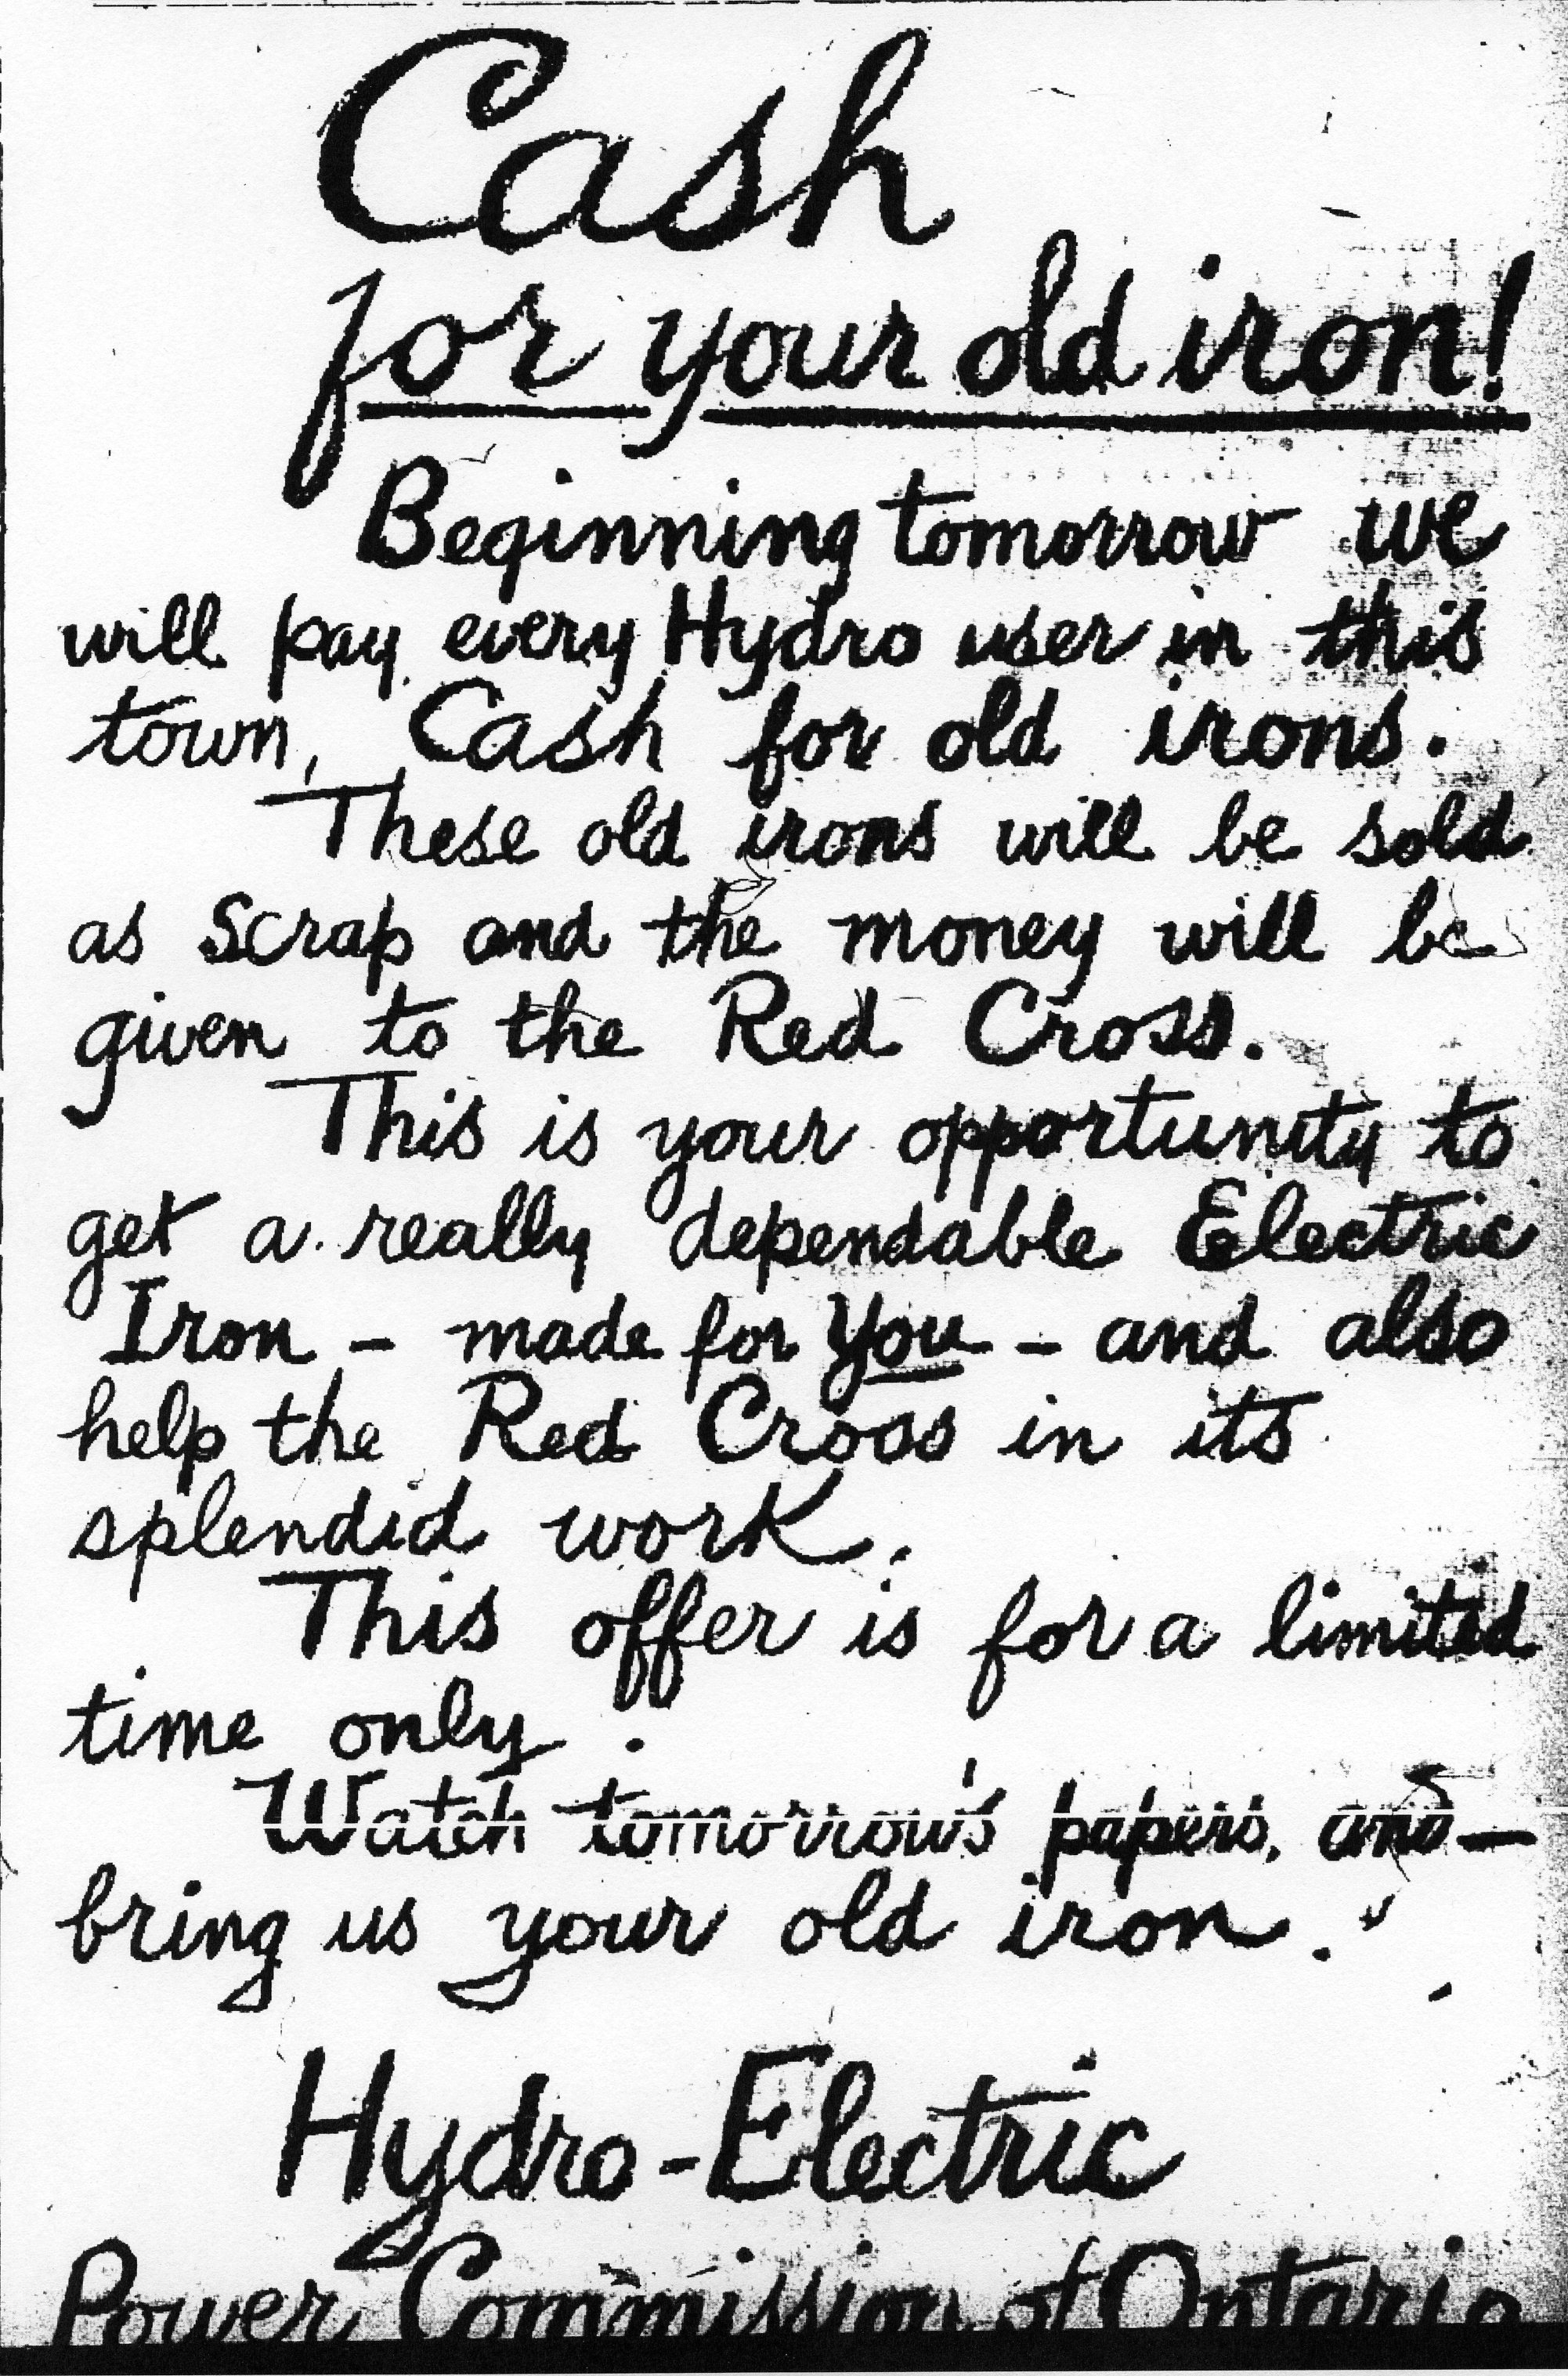 Cash
for your old iron!
Beginning tomorrow we
will pay every Hydro user in this
town, Cash for old irons.
These old irons will be sold
as Scrap and the money will be
given to the Red Cross.
This is your opportunity to
get a really dependable Electric
Iron - made for You - and also
help the Red Cross in its
splendid work.
This offer is for a limited
time only.
Watch tomorrow's papers, and—
bring us your old iron.
Hydro-Electric
Power Commission of Ontario